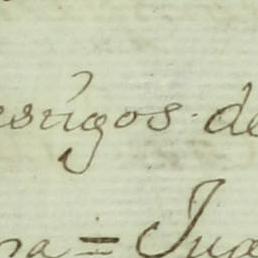 estigos de
ra = Jua